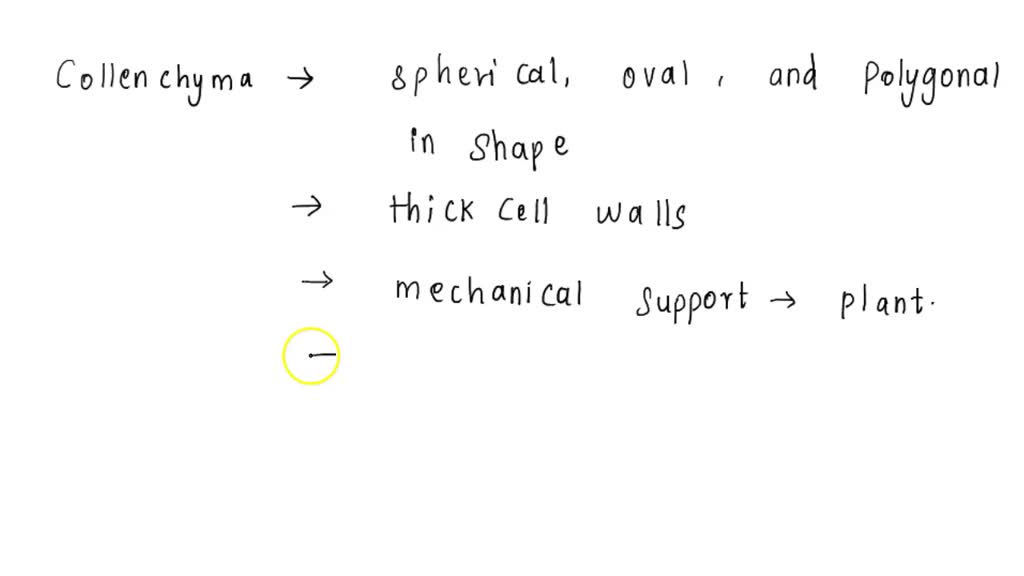 Collenchyma → spherical, oval, and polygonal
in shape
→ thick cell walls
→ mechanical support → plant.